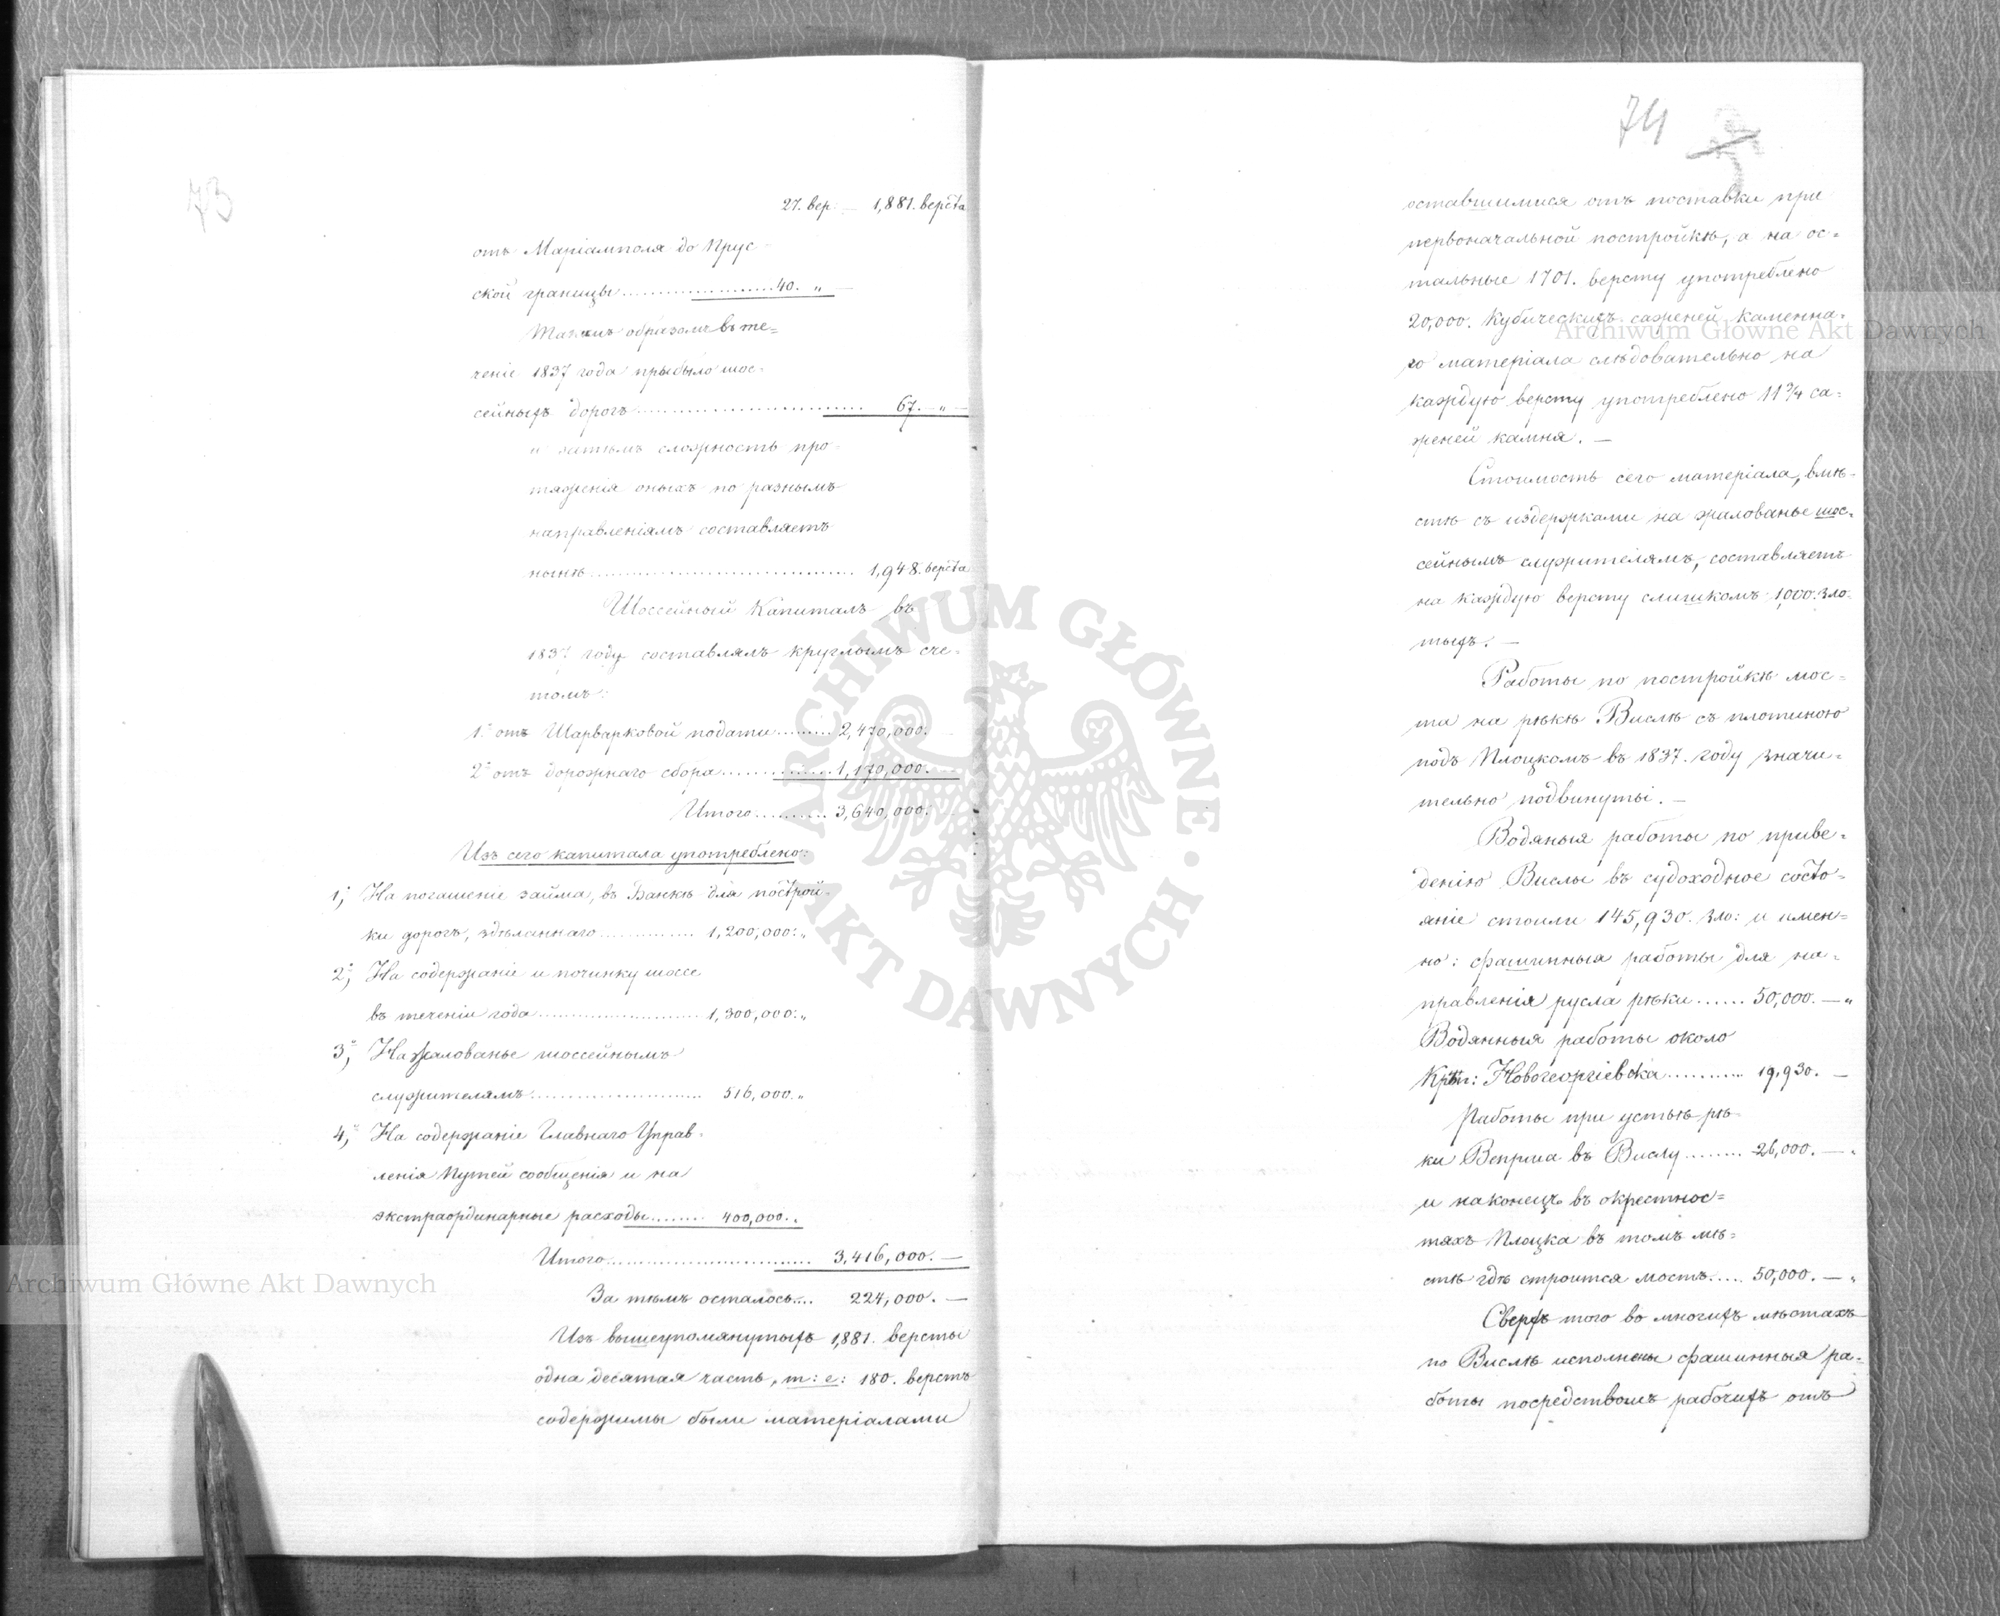 73
27. вер. — 1,881. верста
отъ Маріамполя до Прус-
ской границы .................... 40. „ —
Такимъ образомъ въ те=
ченіе 1837 года прыбыло шос-
сейныхъ дорогъ .............................. 67. — „ —
и затѣмъ сложность про-
тяженія оныхъ по разнымъ
направленіямъ составляетъ
нынѣ .................................. 1,948. верста
Шоссейный Капиталъ въ
1837 году составлялъ круглымъ сче-
томъ:
1.- отъ Шарварковой подати ......... 2,470,000. —
2.- отъ дорожнаго сбора ............... 1,170,000. —
Итого ........... 3,640,000. —
Изъ сего капитала употреблено:
1, На погашеніе займа, въ Банкѣ для построй-
ки дорогъ, здѣланнаго ............... 1,200,000. „
2, На содержаніе и починку шоссе
въ теченіи года ........................ 1,300,000. „
3, На жалованье шоссейнымъ
служителямъ .......................... 516,000. „
4, На содержаніе Главнаго Управ-
ленія Путей сообщенія и на
экстраординарные расходы ........ 400,000. „
Итого .............................. 3,416,000. —
За тѣмъ осталось .... 224,000. —
Изъ вышеупомянутыхъ 1,881. версты
одна десятая часть, т: е: 180. верстъ
содержимы были матеріалами
74
оставшимися отъ поставки при
первоначальной постройкѣ, а на ос=
тальные 1701. версту употреблено
20,000. Кубическихъ саженей каменна-
го матеріала слѣдовательно на
каждую версту употреблено 11 3/4 са-
женей камня. —
Стоимость сего матеріала, вмѣ-
стѣ съ издержками на жалованье шос-
сейнымъ служителямъ, составляетъ
на каждую версту слишкомъ 1,000. зло-
тыхъ. —
Работы по постройкѣ мос-
та на рѣкѣ Вислѣ съ плотиною
подъ Плоцкомъ въ 1837. году значи-
тельно подвинуты. —
Водяныя работы по приве-
денію Вислы въ судоходное состо-
яніе стоили 145,930. зло: и имен-
но: фашинныя работы для на-
правленія русла рѣки ...... 50,000. — „
Водянныя работы около
Крѣп: Новогеоргіевска ........... 19,930. —
Работы при устьѣ рѣ-
ки Вепрша въ Вислу ........ 26,000. — „
и наконецъ въ окрестнос=
тяхъ Плоцка въ томъ мѣ-
стѣ гдѣ строится мостъ ..... 50,000. — „
Сверхъ того во многихъ мѣстахъ
по Вислѣ исполнены фашинныя ра-
боты посредствомъ рабочихъ отъ
ARCHIWUM GŁÓWNE · AKT DAWNYCH ·
Archiwum Główne Akt Dawnych
Archiwum Główne Akt Dawnych